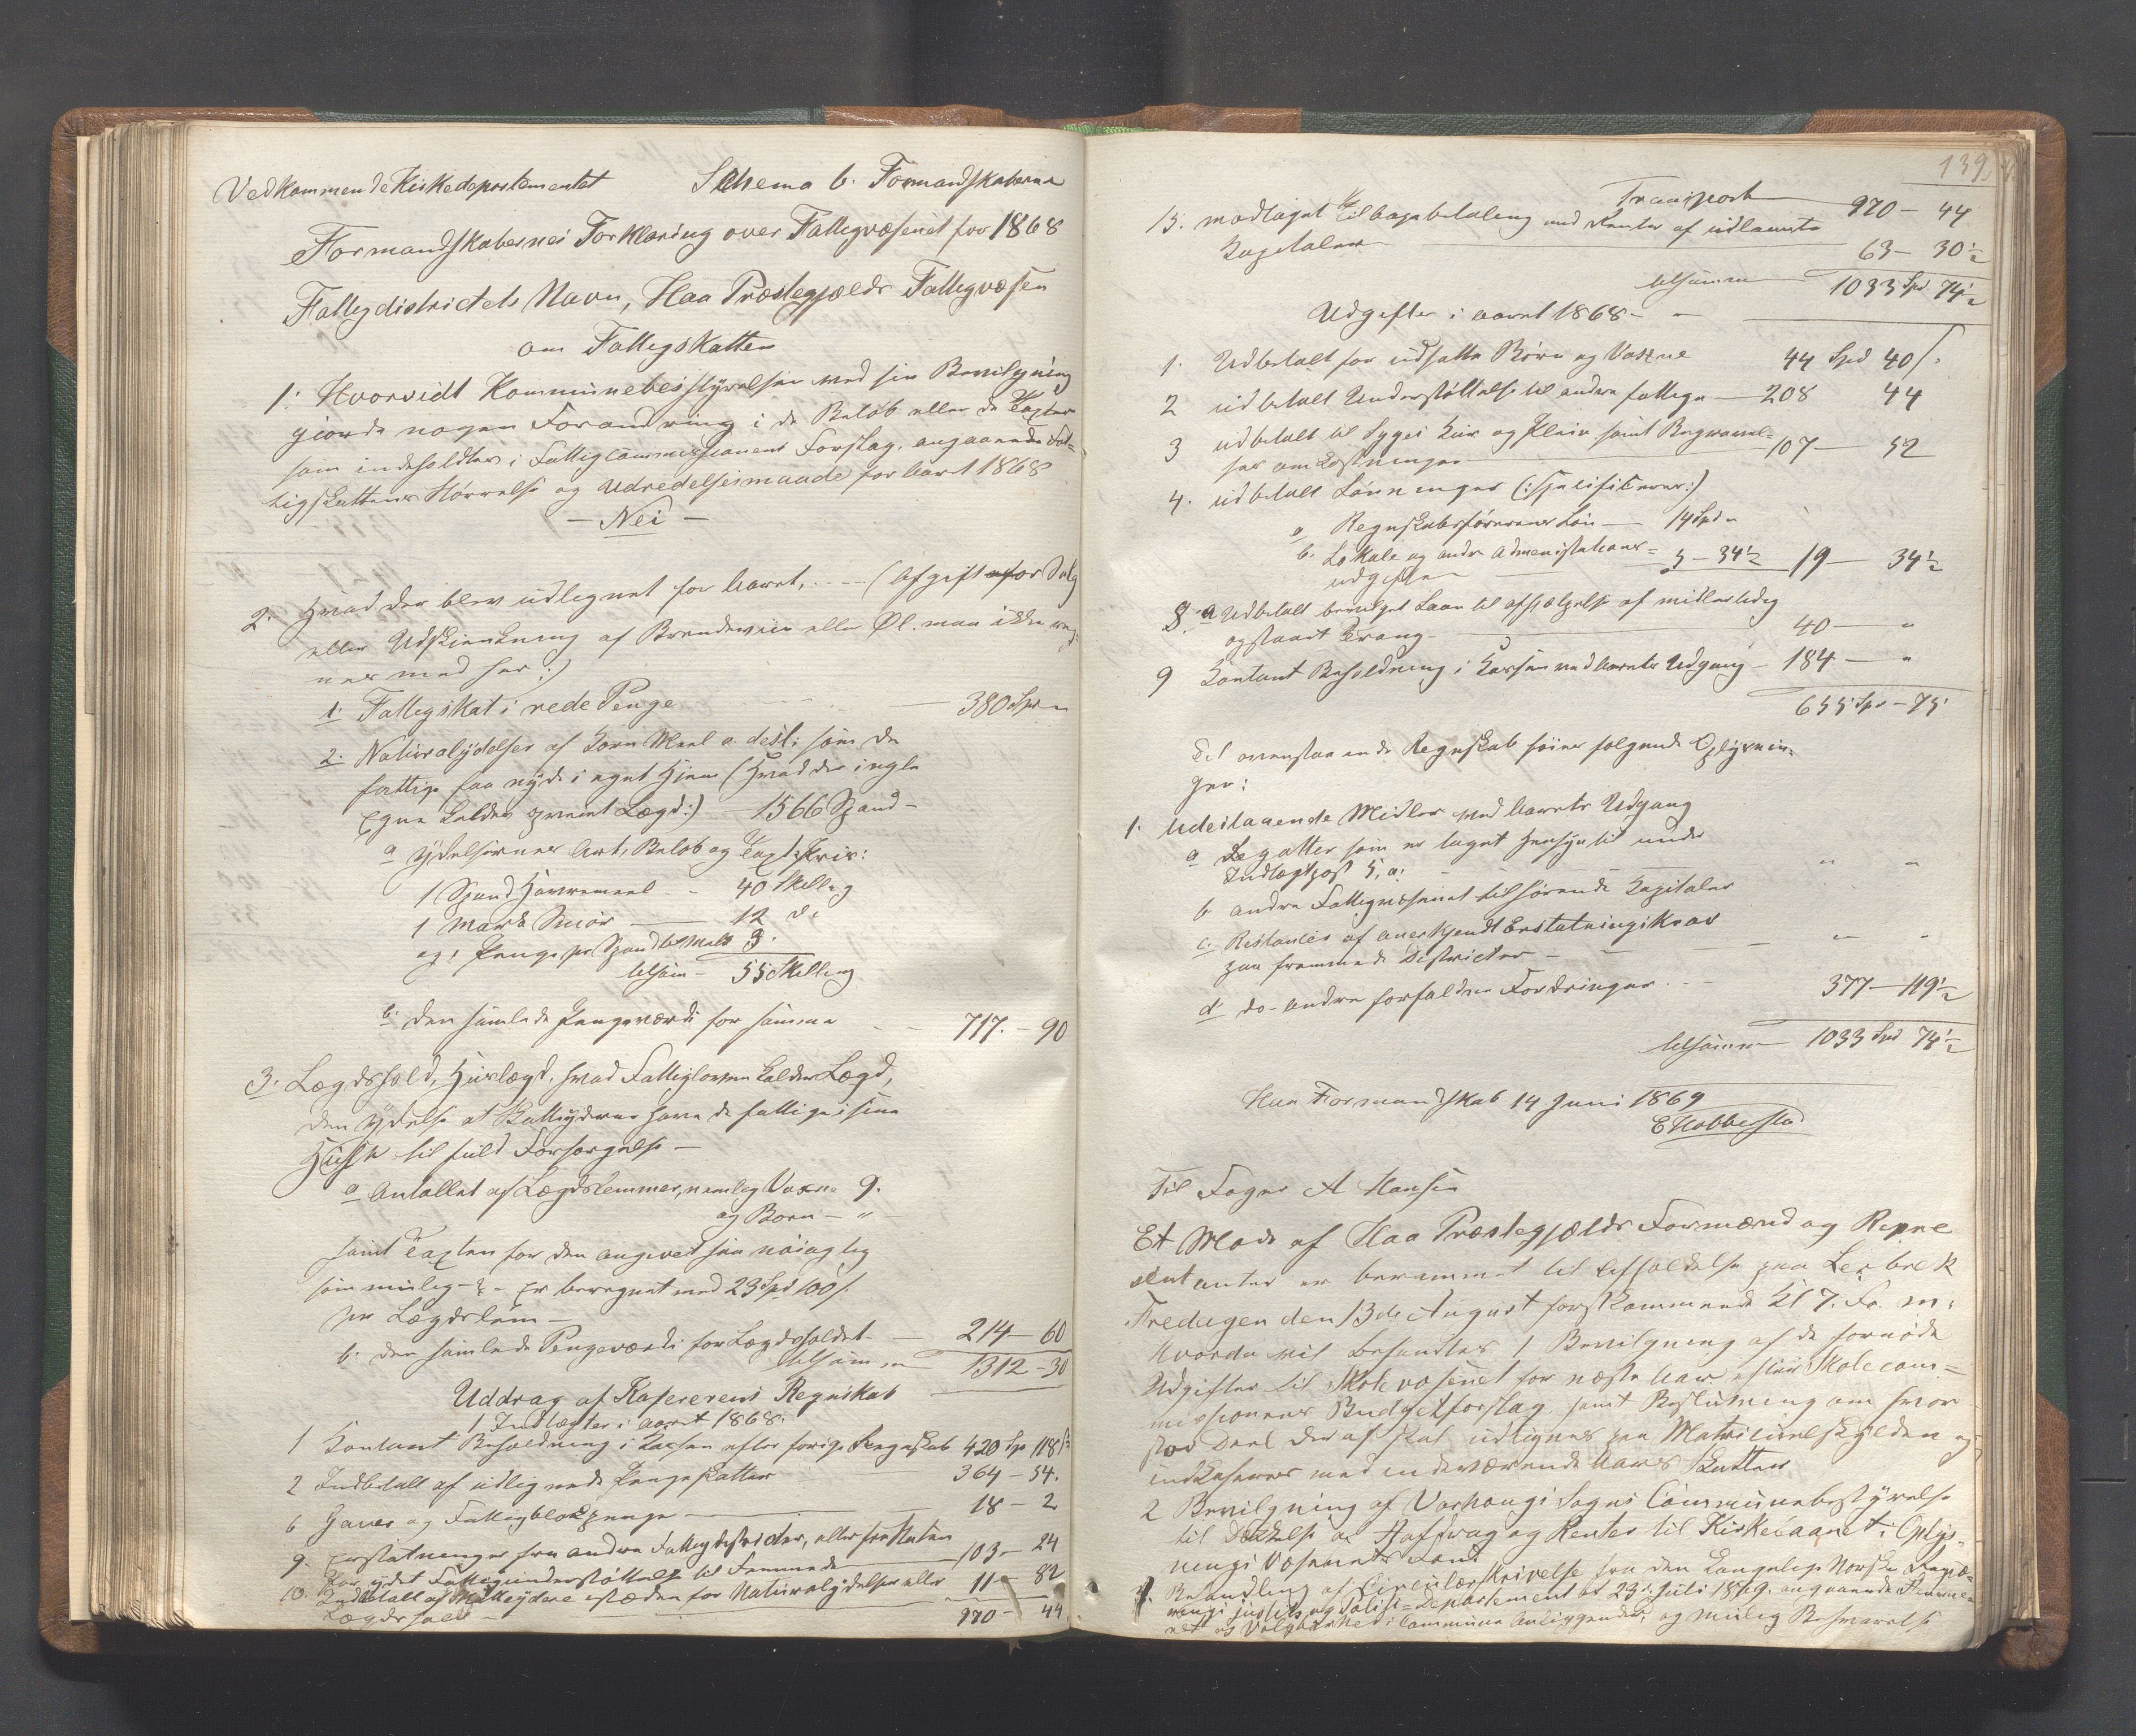 Vedkommende Kirkedepartementet Schema b. Formandskaberne
Formandskabernes Forklaring over Fattigvæsenet for 1868
Fattigdistrictets Navn, Haa Præstegjelds Fattigvæsen
om Fattigskatten
1. Hvorvidt Kommunebestyrelsen ved sin Bevilgning
gjorde nogen Forandring i de Beløb eller de Taxter
som indeholdtes i Fattigcommissionens Forslag, angaaende Fat-
tigskattens Størrelse og Udredelsesmaade for Aaret 1868
- Nei -
2. Hvad der blev udlignet for Aaret, ---- (Afgift for Salg
eller Udskjænkning af Brændeviin eller Øl. maa ikke reg-
nes med her:)
1. Fattigskat i rede Penge 380 Spd "
2. Naturalydelser af Korn Meel o. desl: som de
fattige faa nyde i eget Hjem (hvad der i nogle
Egne kaldes omveiet Lægd:) - 1566 Spand -
a ydelsernes Art, Beløb og Taxt
1 Spand Havremeel - 40 Skilling
1 Mark Smør - 12 do
og i Penge pr Spand 3.
tilsam - 55 Skilling
b. den samlede Pengeværdi for samme - - 717. - 90
3. Lægdshold, Huslægd, hvad Fattigloven kalder Lægd,
den Ydelse at Skatteyderne have de fattige i sine
Huse til fuld Forsørgelse -
a Antallet af Lægdslemmer, nemlig Voxne 9.
og Børn - "
samt Taxten for den angivet saa nøiagtig
som mulig - er beregnet med 23 Spd 100 s.
pr Lægdslem -
b. den samlede Pengeværdi for Lægdsholdet - 214 - 60
tilsammen 1312 - 30
Uddrag af Kasererens Regnskab
1 Indtægter i aaret 1868:
1 Kontant Beholdning i Kassen efter forrige Regnskab 420 Sp 118 s
2 Indbetalt af udlignede Pengeskatter 364 - 54.
6 Gaver og Fattigblokpenge - 18 - 2
9. Erstatninger fra andre Fattigdistricter, eller fra Staten
for ydet Fattigunderstøttelse til Fremmede 103 - 24
10. Indbetalt af Skatteydere istæden for Naturalydelser eller 11 - 82
Lægdshold - 970 - 44.
139.
Transport 970 - 44
15. modtaget Tilbagebetaling med Renter af udlaante
Kapitaler 63 - 30½
tilsammen 1033 Spd 74½
Udgifter i aaret 1868 - -
1. Udbetalt for udsatte Børn og Voxne 44 Spd 40 s.
2 udbetalt Understøttelse til andre fattige - 208 44
3 udbetalt til Syges Kur og Pleie samt Begravel-
ses omkostninger 107 - 52
4. udbetalt Lønninger (:specificeres:)
a Regnskabsførerens Løn - 14 Spd "
b. Lokale og andre Administrations-
udgifter 5 - 34½ 19 - 34½
8. a Udbetalt bevilget Laan til afhjælpelse af midlertidig
opstaaet Trang - 40 - "
9 Kontant Beholdning i Kassen ved Aarets Udgang - 184 - "
655 Spd - 75
Til ovenstaaende Regnskab føies følgende Oplysnin-
ger:
1. Udestaaende Midler ved Aarets Udgang
a Legatter som er taget Hensyn til under
Indtægtpost 5, a: " "
b. andre Fattigvæsenet tilhørende Kapitaler
c. Restancer af anerkjendt Erstatningskrav
paa fremmede Districter - - - " "
d do. andre forfaldne Fordringer. - - 377 - 119½
tilsammen 1033 Spd 74½
Haa Formandskab 14 Juni 1869
E Nobbestad
Til Foged A Hansen
Et Møde af Haa Præstegjelds Formænd og Repræ
sentanter er berammet til Afholdelse paa Leibrek
Fredagen den 13de August førstkommende Kl 7. Fo. m:
Hvorda vil behandles 1 Bevilgning af de fornødne
Udgifter til Skolevæsenet for næste Aar efter Skolecom-
missionens Budgetforslag samt Beslutning om hvor
stor Deel deraf skal udlignes paa Matriculskylden og
indkasseres med indeværende Aars Skatter
2 Bevilgning af Varhougs Sogns Communebestyrelse
til Dækkelse af Afdrag og Renter til Kirkelaanet i Oplys-
nings Væsenets Fond
3. Behandling af Circulærskrivelse fra den Kongelige Norske Regje-
rings Justits og Politi-Departement af 23de Juli 1869. angaaende Stemme-
ret og Valgbarhed i Commune Anliggender, og mulig Besvarelse